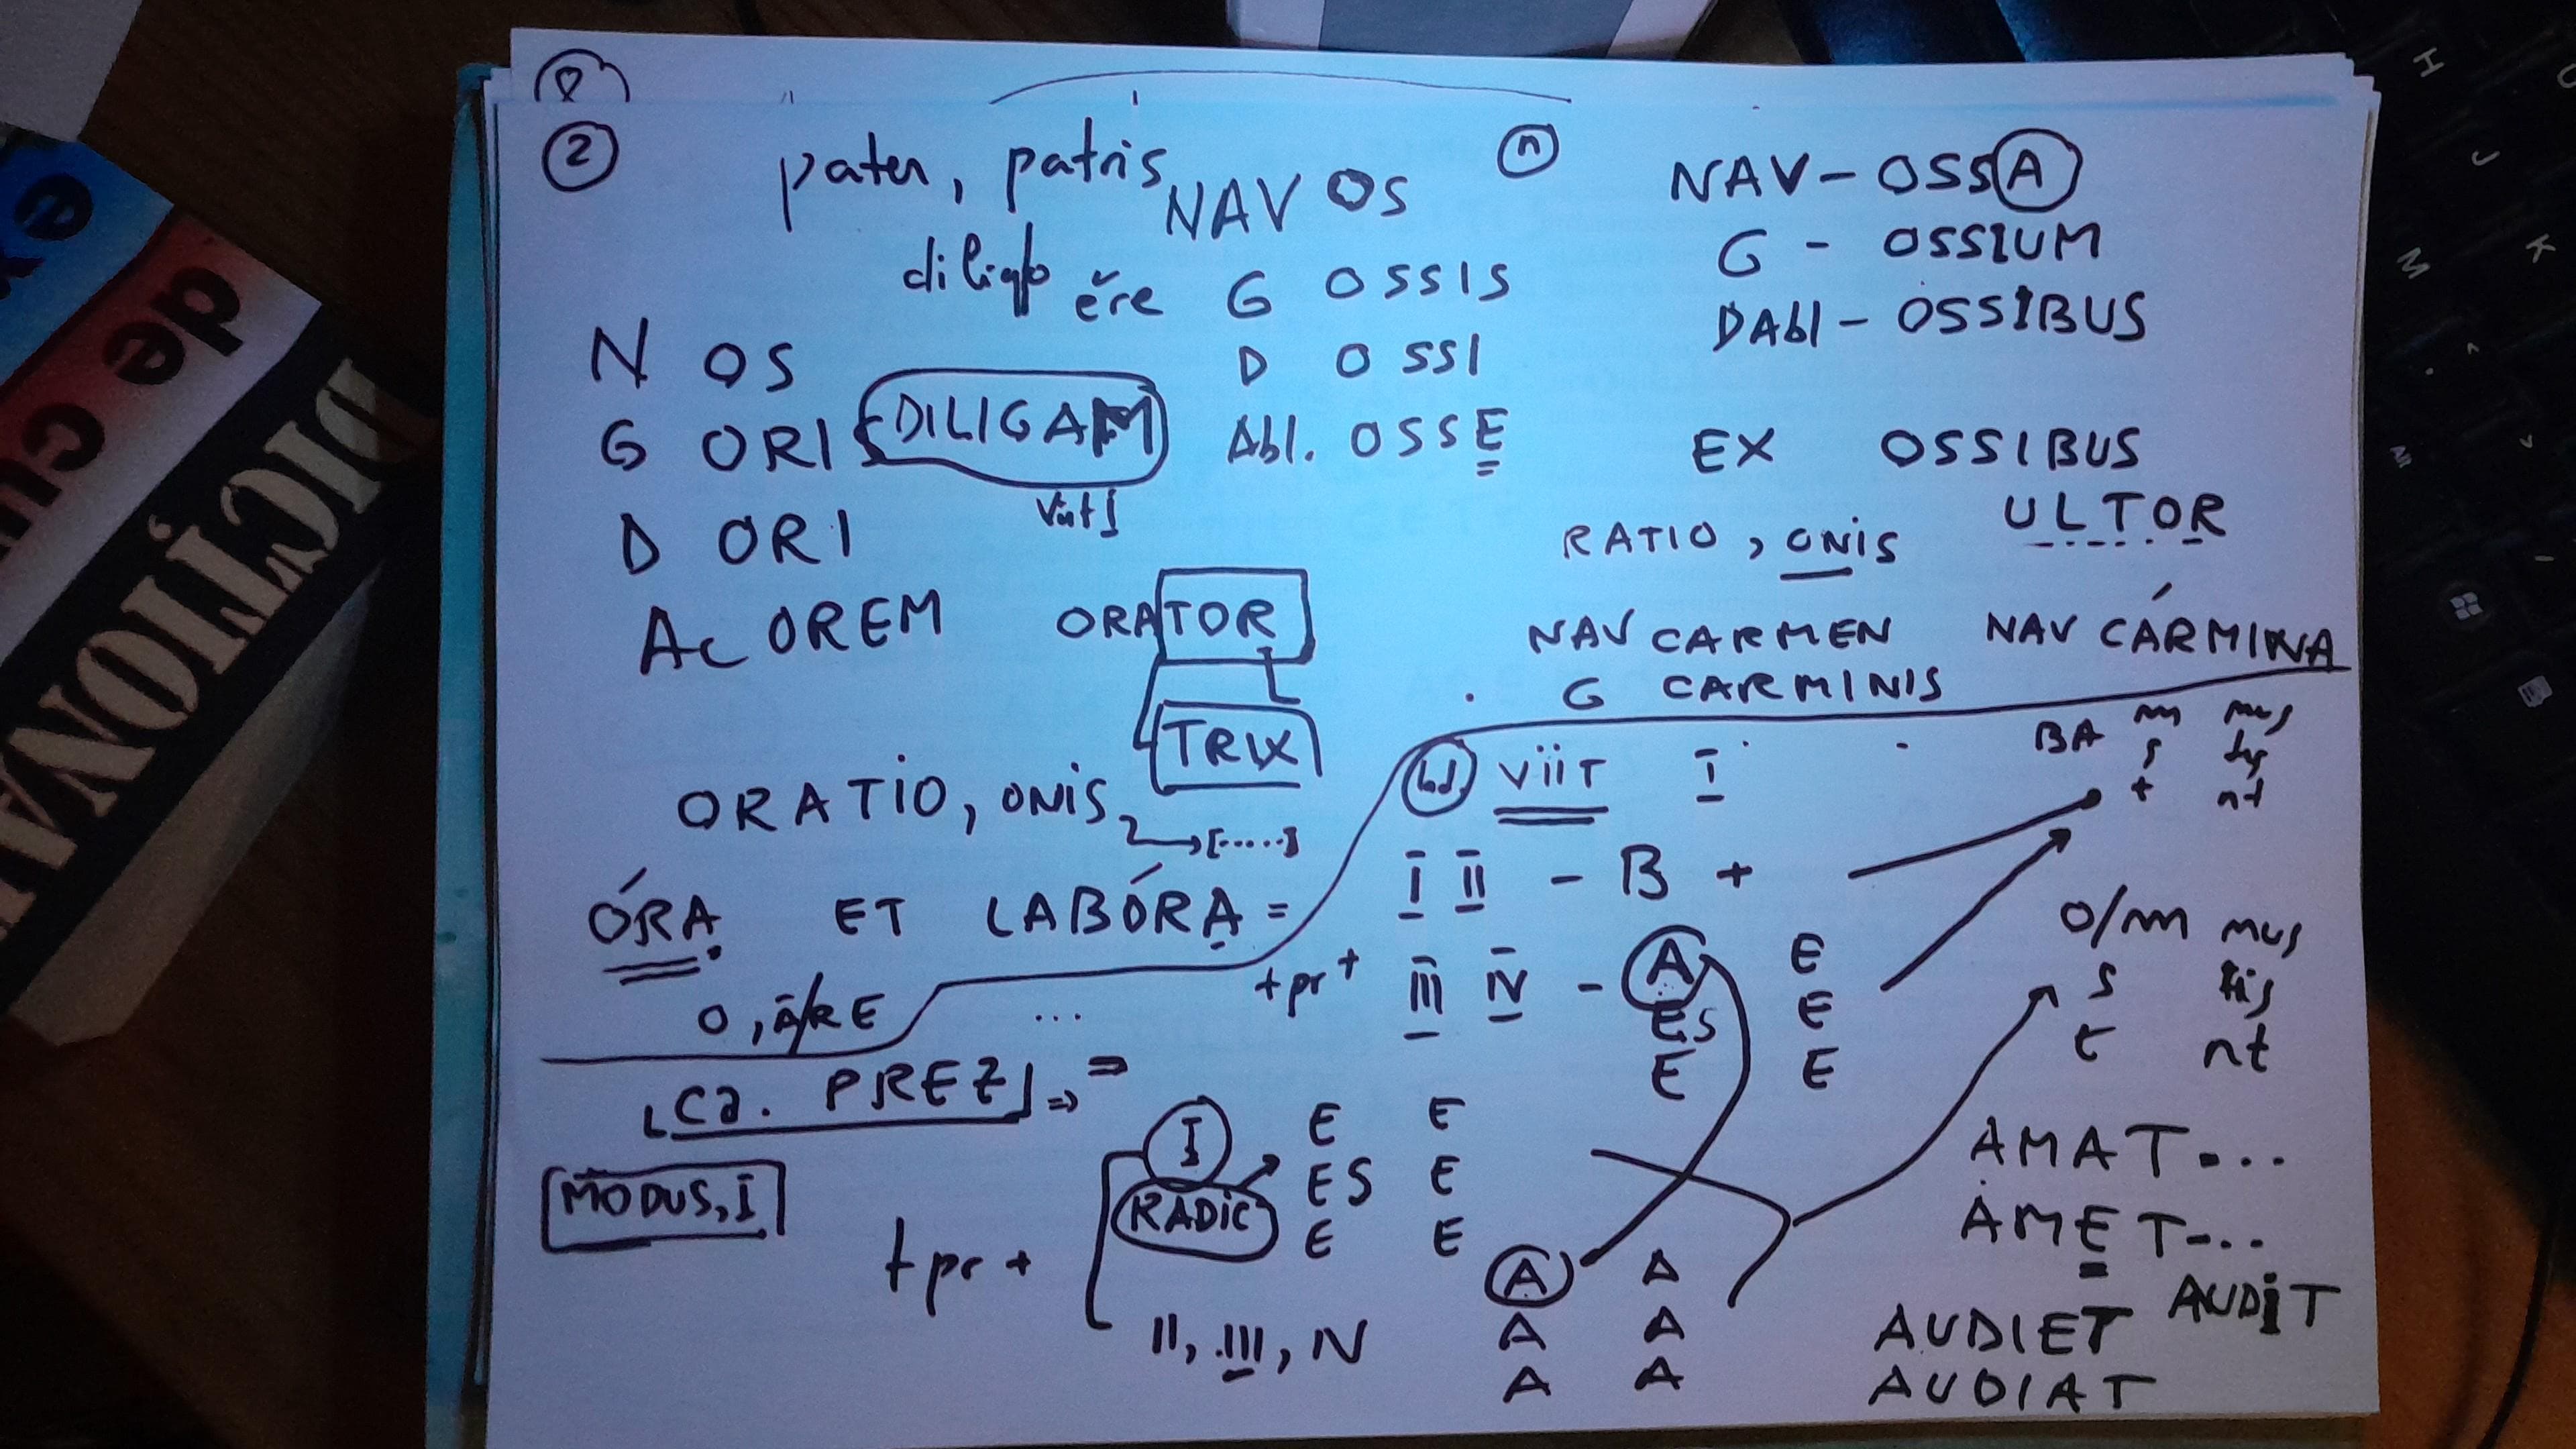 ②
pater, patris
NAV OS
ⓝ
NAV - OSSA
diligo ĕre
G OSSIS
G - OSSIUM
N OS
D OSSI
DAbl - OSSIBUS
G ORIS
DILIGAM
Abl. OSSE
EX OSSIBUS
D ORI
RATIO, ONIS
ULTOR
Ac OREM
ORATOR
NAV CARMEN
NAV CÁRMINA
G CARMINIS
TRIX
ORATIO, ONIS,
[.....]
VIIT I
BA m mus
s tis
t nt
ÓRA ET LABÓRA =
I II - B +
O, ĀRE ...
+ pr + III IV - A E
ES E
E E
O/m mus
s tis
t nt
PREZ =>
MODUS, I
+ pr +
I
RADIC
E E
ES E
E E
II, III, IV
A A
A A
A A
AMAT - ...
AMET - ...
AUDIT
AUDIET
AUDIAT
DICȚIONA
de cu
ex
H
J
K
M
Alt